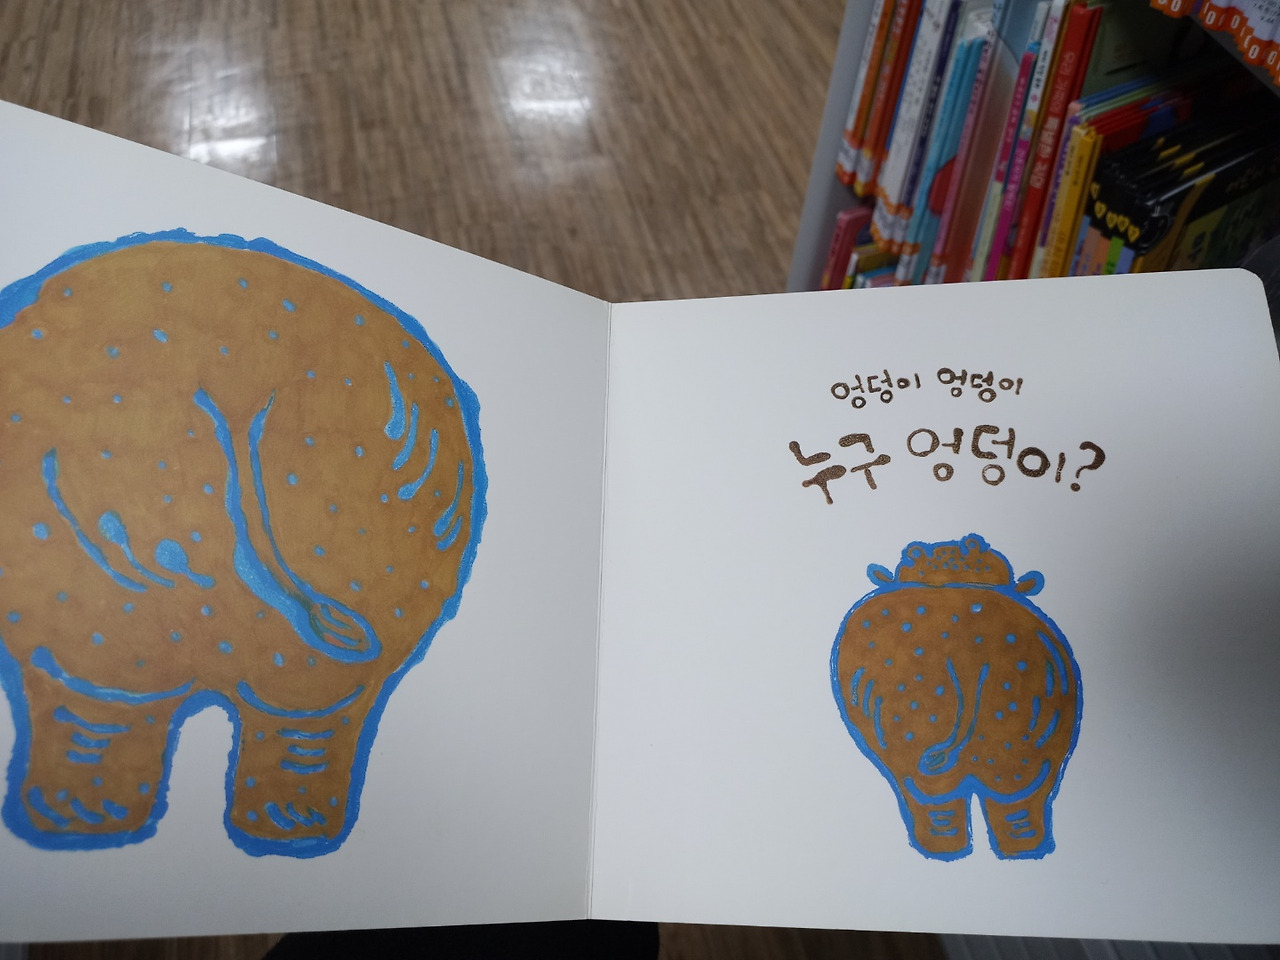 엉덩이 엉덩이
누구 엉덩이?